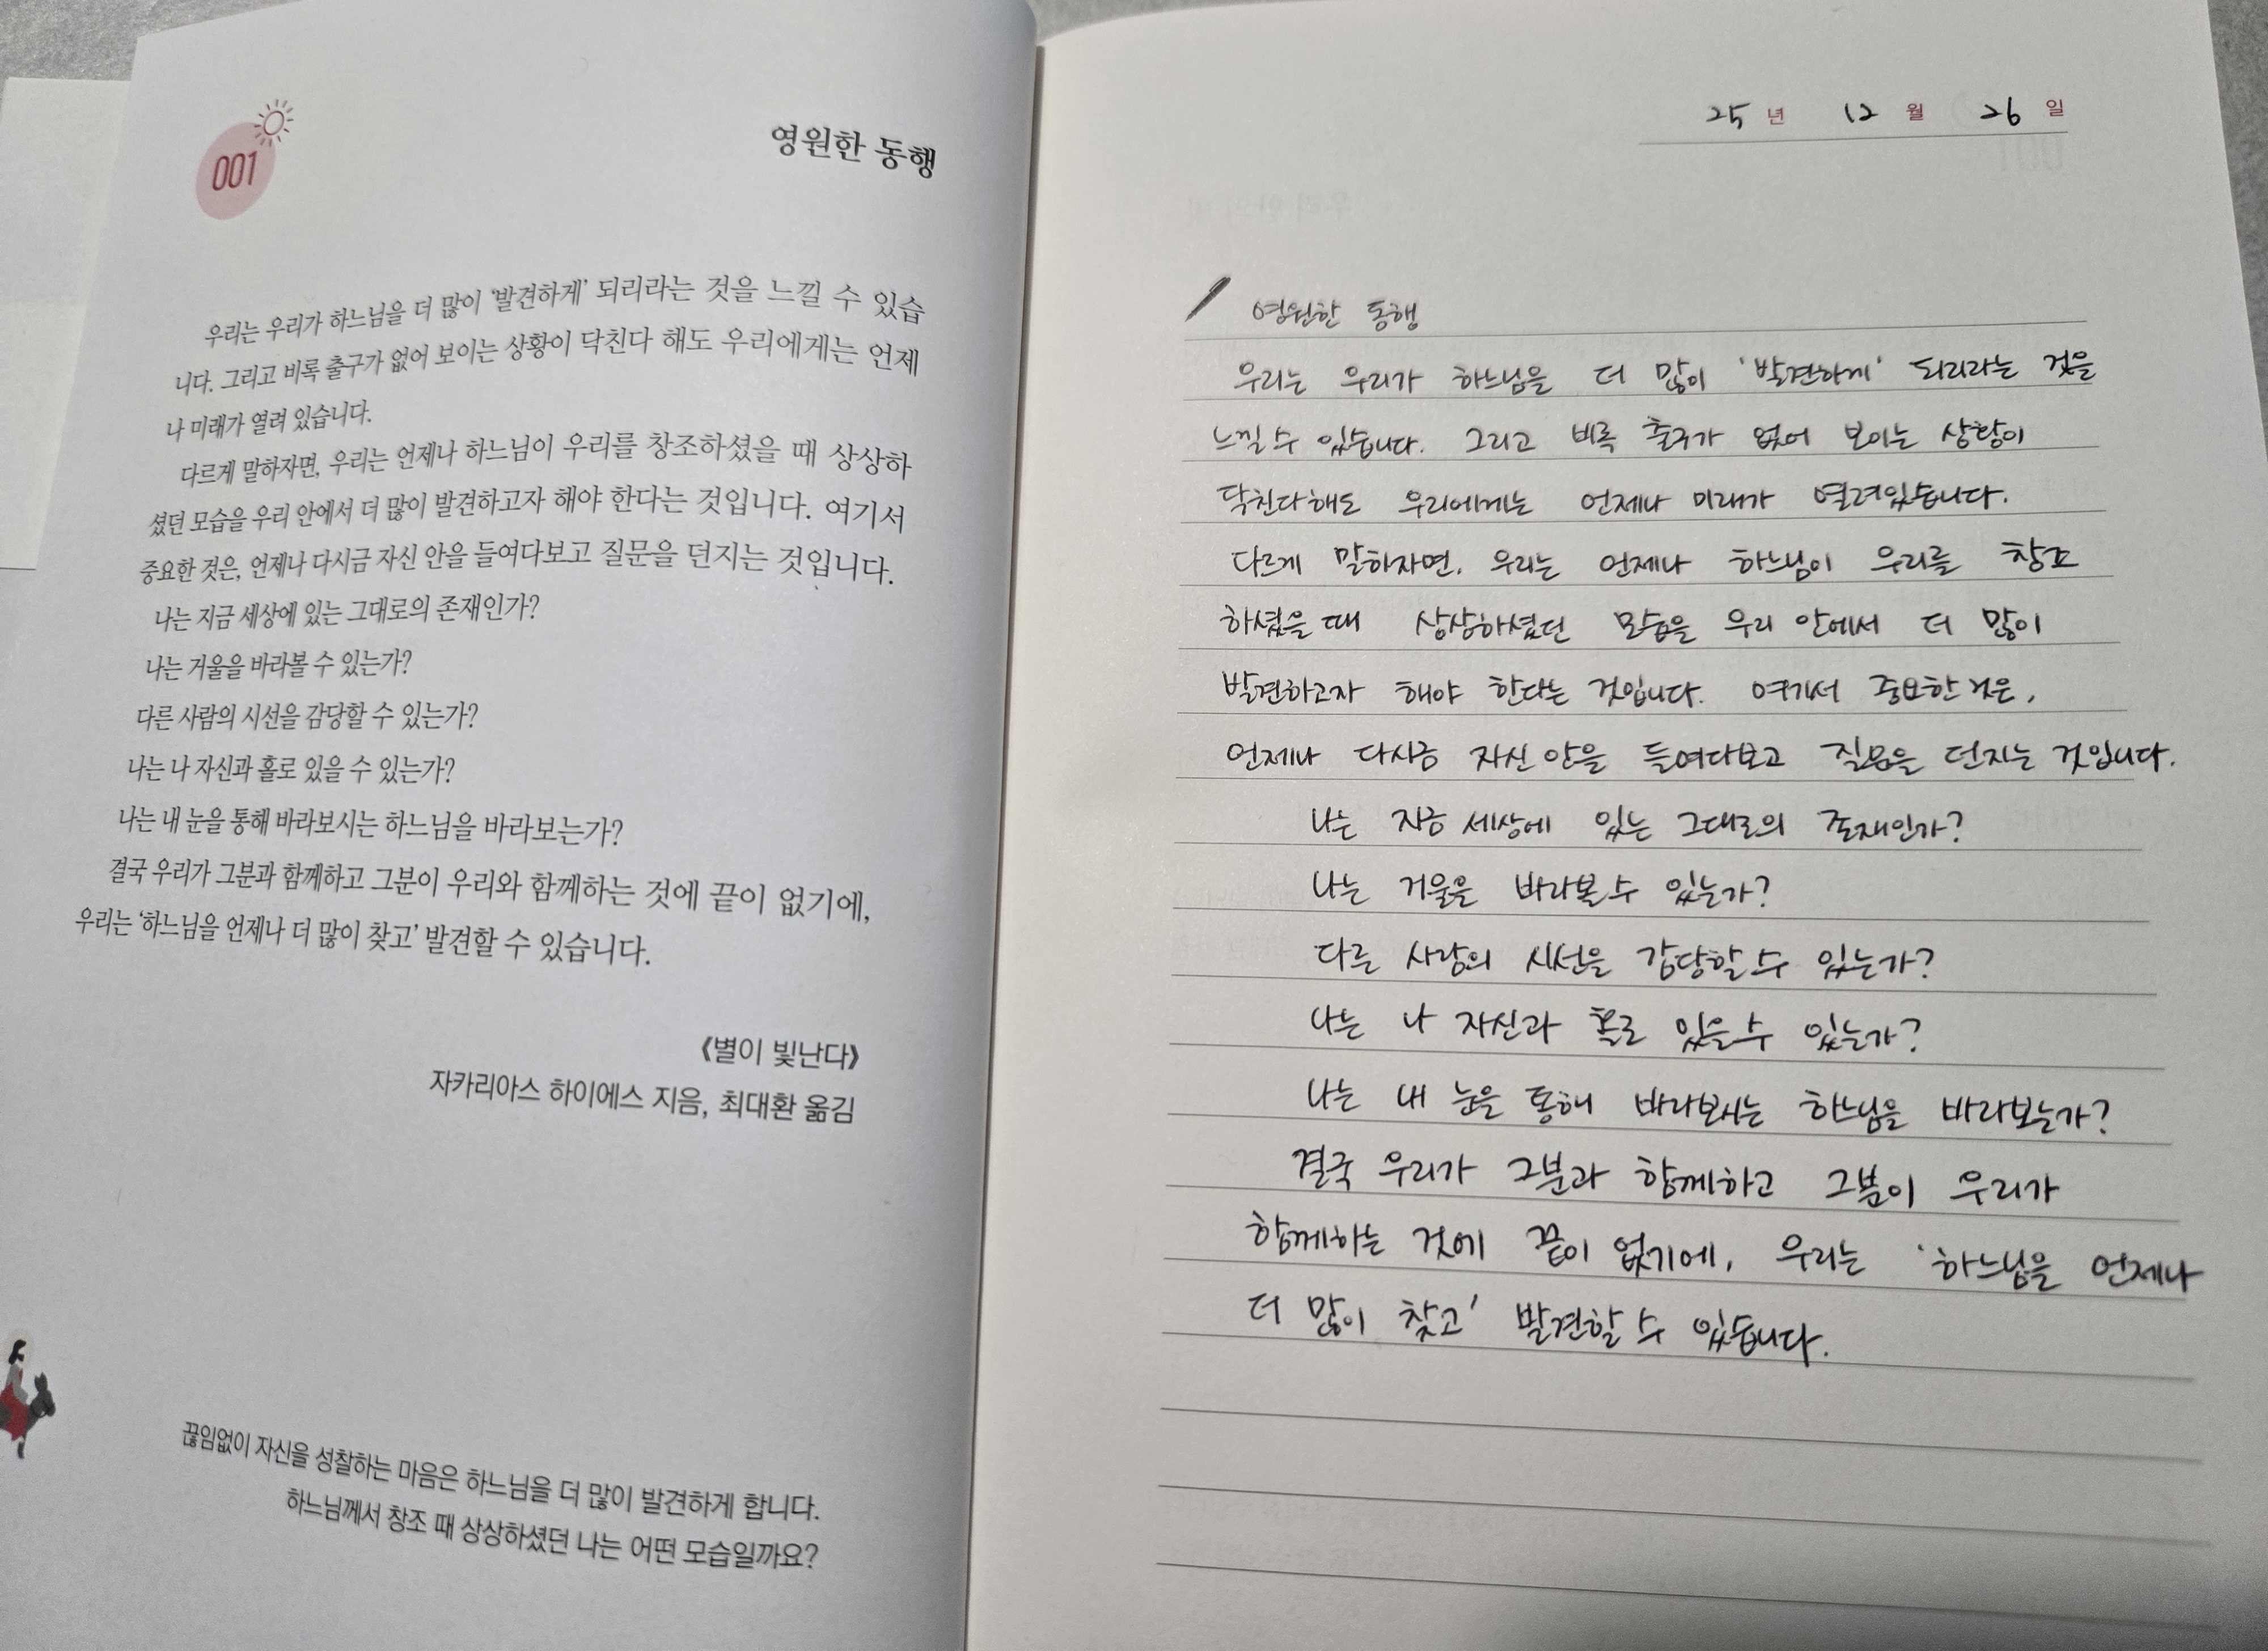 001
영원한 동행
우리는 우리가 하느님을 더 많이 ‘발견하게’ 되리라는 것을 느낄 수 있습
니다. 그리고 비록 출구가 없어 보이는 상황이 닥친다 해도 우리에게는 언제
나 미래가 열려 있습니다.
다르게 말하자면, 우리는 언제나 하느님이 우리를 창조하셨을 때 상상하
셨던 모습을 우리 안에서 더 많이 발견하고자 해야 한다는 것입니다. 여기서
중요한 것은, 언제나 다시금 자신 안을 들여다보고 질문을 던지는 것입니다.
나는 지금 세상에 있는 그대로의 존재인가?
나는 거울을 바라볼 수 있는가?
다른 사람의 시선을 감당할 수 있는가?
나는 나 자신과 홀로 있을 수 있는가?
나는 내 눈을 통해 바라보시는 하느님을 바라보는가?
결국 우리가 그분과 함께하고 그분이 우리와 함께하는 것에 끝이 없기에,
우리는 ‘하느님을 언제나 더 많이 찾고’ 발견할 수 있습니다.
《별이 빛난다》
자카리아스 하이에스 지음, 최대환 옮김
끊임없이 자신을 성찰하는 마음은 하느님을 더 많이 발견하게 합니다.
하느님께서 창조 때 상상하셨던 나는 어떤 모습일까요?
25 년 12 월 26 일
영원한 동행
우리는 우리가 하느님을 더 많이 '발견하게' 되리라는 것을
느낄 수 있습니다. 그리고 비록 출구가 없어 보이는 상황이
닥친다 해도 우리에게는 언제나 미래가 열려있습니다.
다르게 말하자면, 우리는 언제나 하느님이 우리를 창조
하셨을 때 상상하셨던 모습을 우리 안에서 더 많이
발견하고자 해야 한다는 것입니다. 여기서 중요한 것은,
언제나 다시금 자신 안을 들여다보고 질문을 던지는 것입니다.
나는 지금 세상에 있는 그대로의 존재인가?
나는 거울을 바라볼 수 있는가?
다른 사람의 시선을 감당할 수 있는가?
나는 나 자신과 홀로 있을 수 있는가?
나는 내 눈을 통해 바라보시는 하느님을 바라보는가?
결국 우리가 그분과 함께하고 그분이 우리가
함께하는 것에 끝이 없기에, 우리는 '하느님을 언제나
더 많이 찾고' 발견할 수 있습니다.